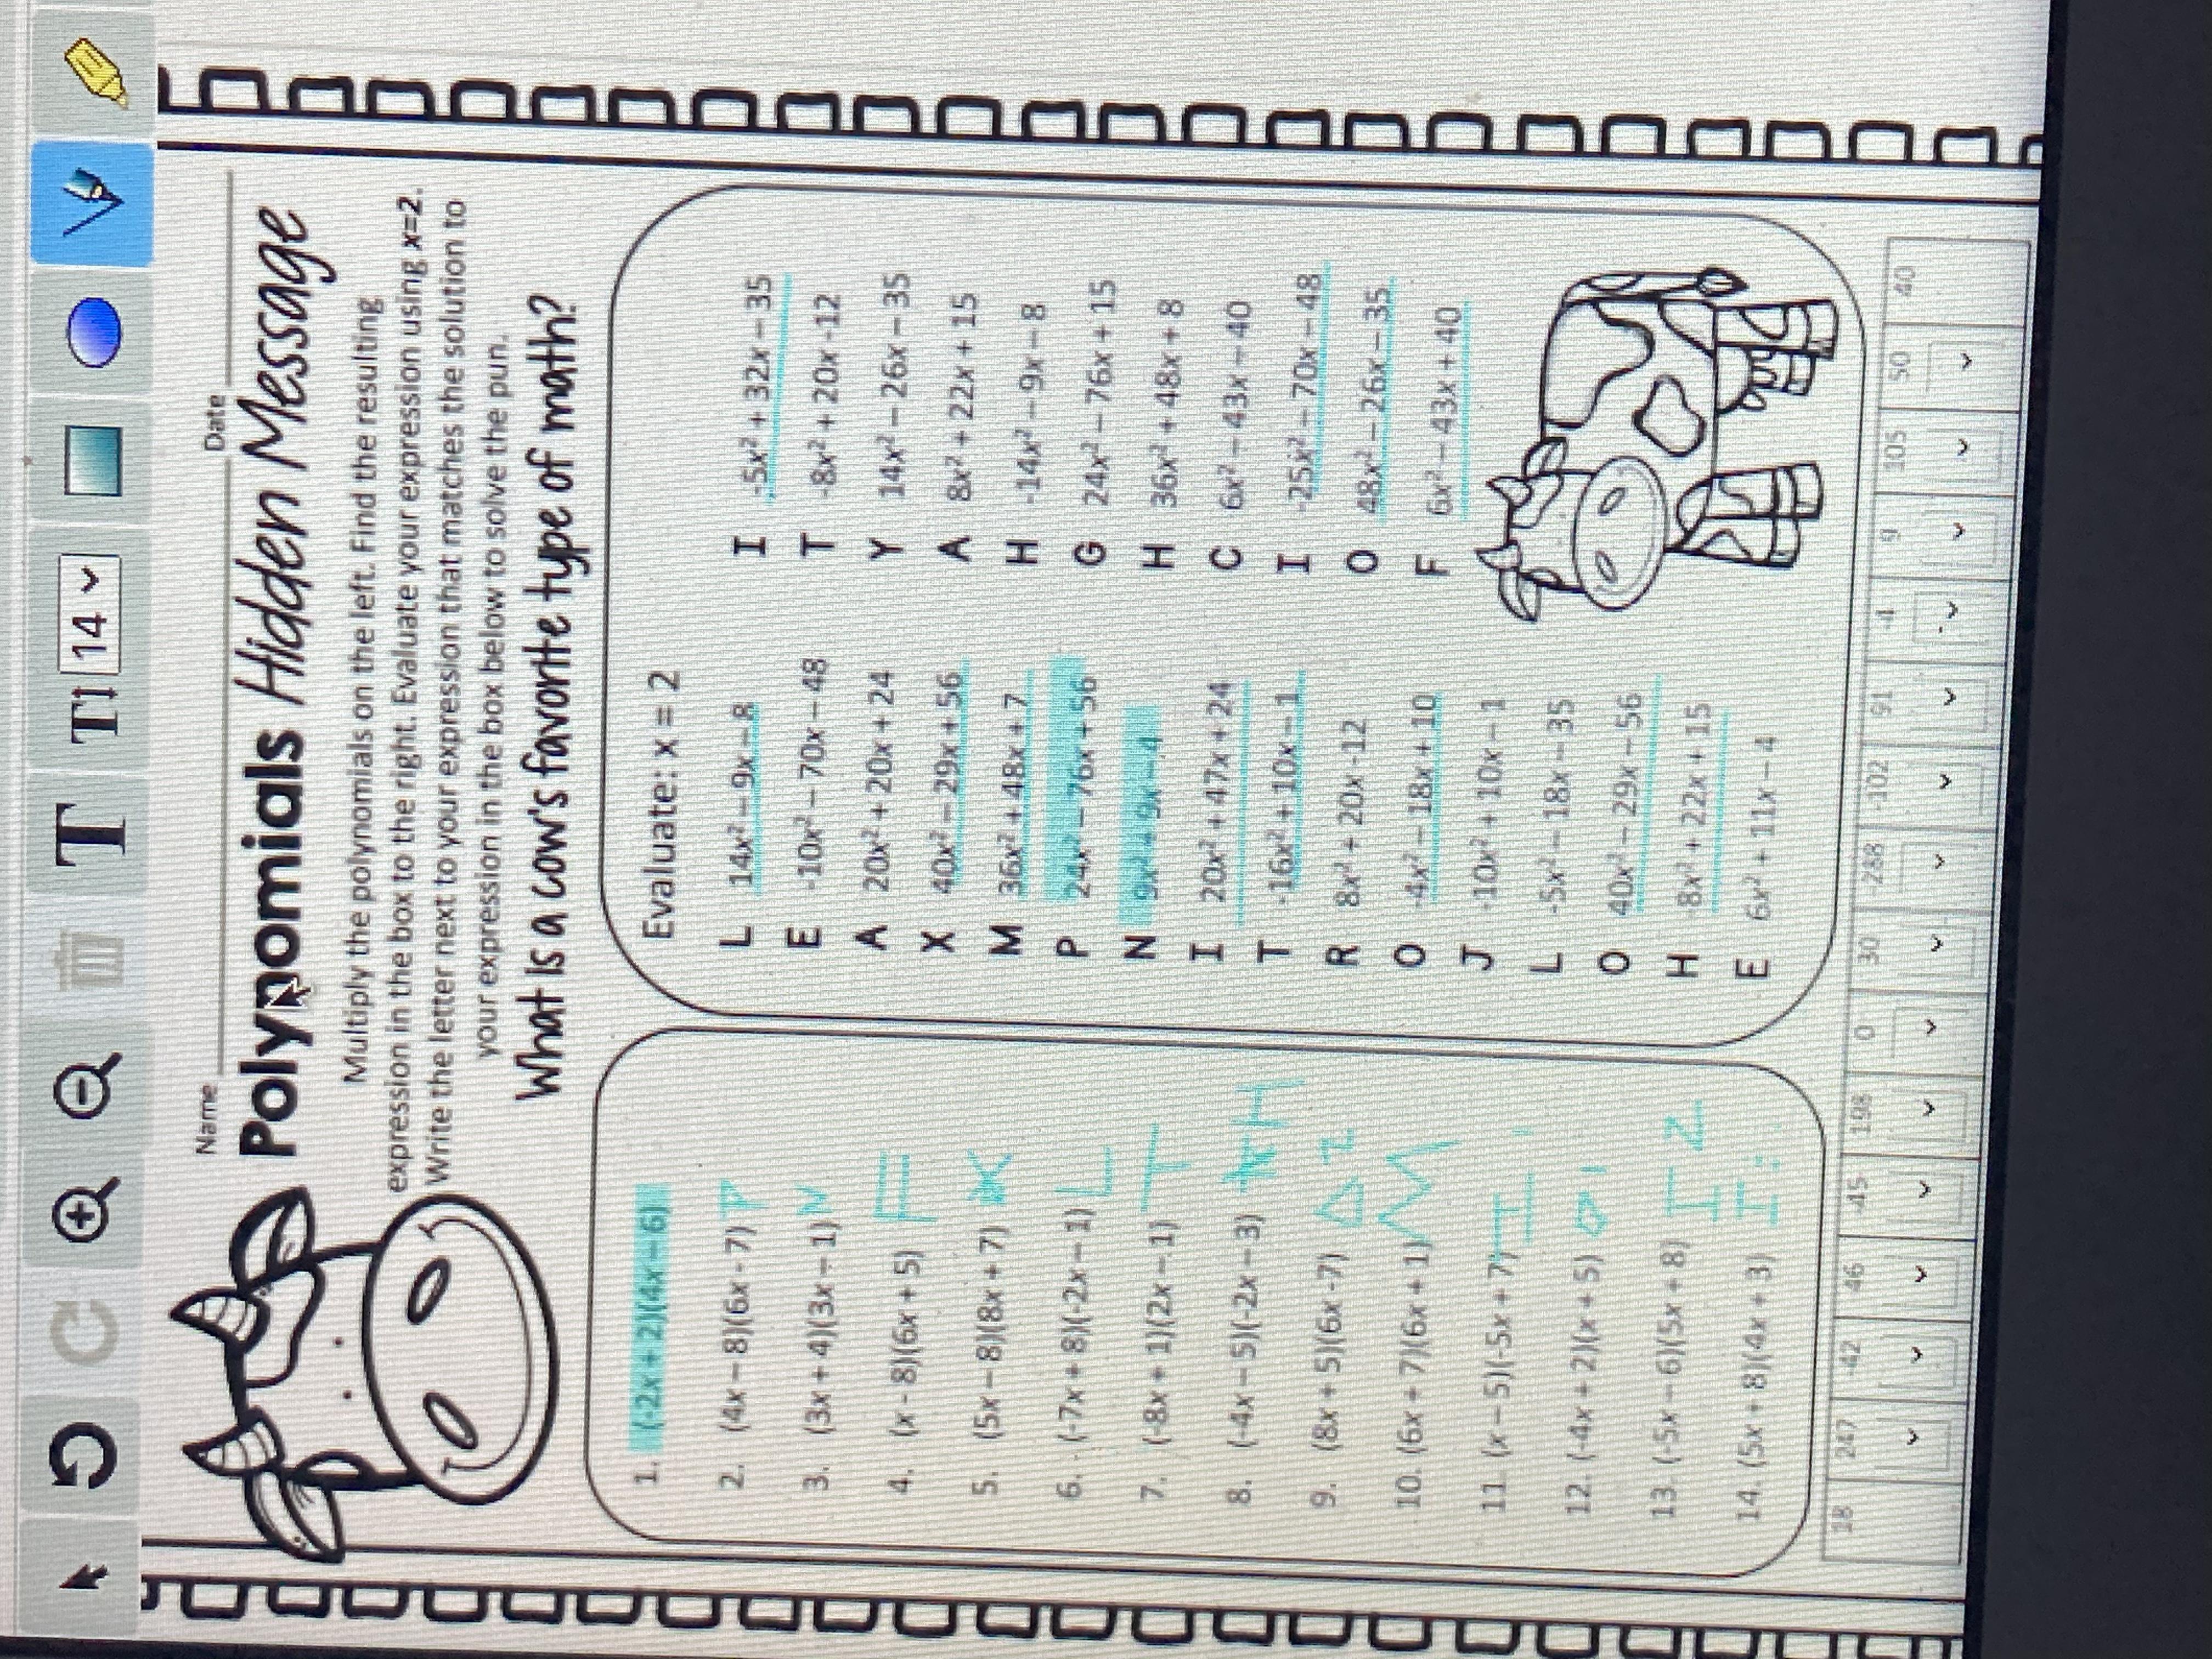 T T↕ 14
Name Date
Polynomials Hidden Message
Multiply the polynomials on the left. Find the resulting
expression in the box to the right. Evaluate your expression using x=2.
Write the letter next to your expression that matches the solution to
your expression in the box below to solve the pun.
What is a cow's favorite type of math?
1. (-2x + 2)(4x – 6)
2. (4x – 8)(6x - 7) P
3. (3x + 4)(3x – 1) N
4. (x - 8)(6x + 5) F
5. (5x – 8)(8x + 7) X
6. (-7x + 8)(-2x – 1) L
7. (-8x + 1)(2x – 1) T
8. (-4x – 5)(-2x – 3) H
9. (8x + 5)(6x -7) O 2
10. (6x + 7)(6x + 1) M
11. (x – 5)(-5x + 7) I
12. (-4x + 2)(x + 5) O 1
13. (-5x – 6)(5x + 8) I 2
14. (5x + 8)(4x + 3) I
Evaluate: x = 2
L 14x² – 9x – 8
E -10x² – 70x – 48
A 20x² + 20x + 24
X 40x² – 29x + 56
M 36x² + 48x + 7
P 24x² – 76x + 56
N 9x² + 9x – 4
I 20x² + 47x + 24
T -16x² + 10x – 1
R 8x² + 20x -12
O -4x² – 18x + 10
J -10x² + 10x – 1
L -5x² – 18x – 35
O 40x² – 29x – 56
H 8x² + 22x + 15
E 6x² + 11x – 4
I -5x² + 32x – 35
T -8x² + 20x -12
Y 14x² – 26x – 35
A 8x² + 22x + 15
H -14x² – 9x – 8
G 24x² – 76x + 15
H 36x² + 48x + 8
C 6x² – 43x – 40
I -25x² – 70x – 48
O 48x² – 26x – 35
F 6x² – 43x + 40
18 247 -42 46 -45 198 0 30 -288 -102 91 -4 9 105 50 40